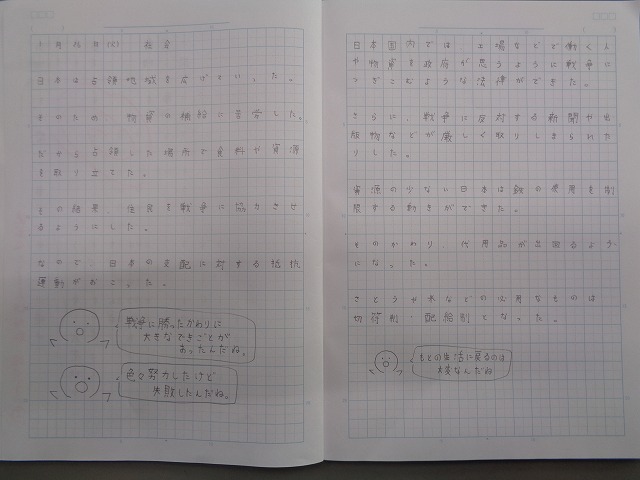 1月 日(火) 社会
日本は占領地域を広げていった。
そのため、物資の補給に苦労した。
だから占領した場所で食料や資源
を取り立てた。
その結果、住民を戦争に協力させ
るようにした。
なので、日本の支配に対する抵抗
運動がおこった。
戦争に勝ったかわりに
大きなできごとが
あったんだね。
色々努力したけど
失敗したんだね。
日本国内では、工場などで働く人
や物資を政府が思うように戦争に
つぎこむような法律ができた。
さらに、戦争に反対する新聞や出
版物などが厳しく取りしまられた
りした。
資源の少ない日本は鉄の使用を制
限する動きができた。
そのかわり、代用品が出回るよう
になった。
さとうや米などの必要なものは
切符制・配給制となった。
もとの生活に戻るのは
大変なんだね